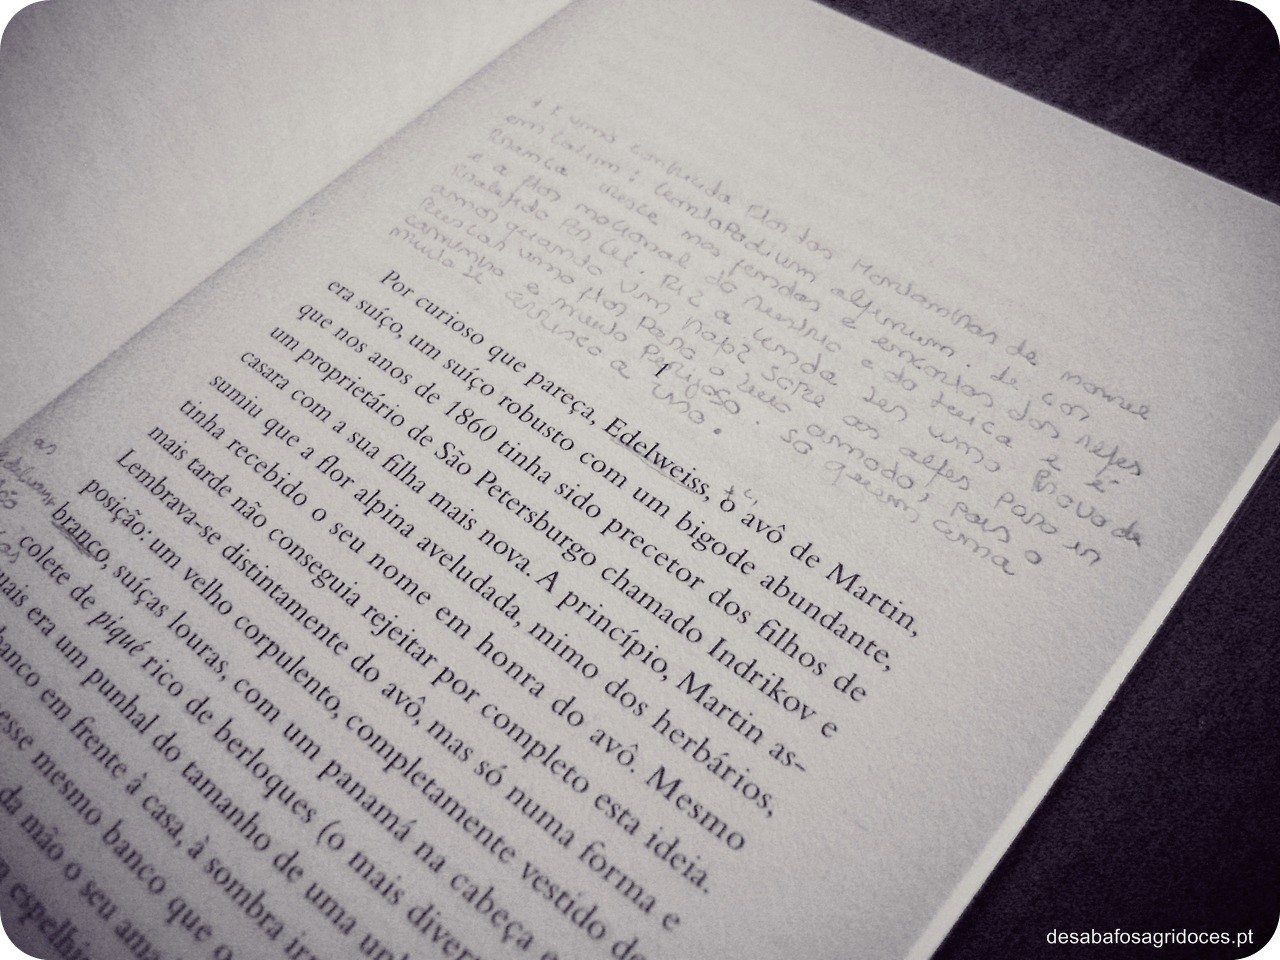 * É uma conhecida flor das Montanhas de nome
em Latim: Leontopodium alpinum. de cor
Branca cresce nas fendas e encostas dos
e a flor nacional da Austria e da Suiça e é
Protegida Por Lei. Diz a Lenda ser uma Prova de
amor quando um Rapaz sobe os alpes para ir
Buscar uma flor para o seu amado, pois o
caminho é muito Perigoso. só quem ama
muito se arrisca a isso.
Por curioso que pareça, Edelweiss, o avô de Martin,
era suíço, um suíço robusto com um bigode abundante,
que nos anos de 1860 tinha sido precetor dos filhos de
um proprietário de São Petersburgo chamado Indrikov e
casara com a sua filha mais nova. A princípio, Martin as-
sumiu que a flor alpina aveludada, mimo dos herbários,
tinha recebido o seu nome em honra do avô. Mesmo
mais tarde não conseguia rejeitar por completo esta ideia.
Lembrava-se distintamente do avô, mas só numa forma e
posição: um velho corpulento, completamente vestido de
branco, suíças louras, com um panamá na cabeça e
colete de piqué rico de berloques (o mais diver
uais era um punhal do tamanho de uma unh
banco em frente à casa, à sombra
esse mesmo banco que o
da mão o seu